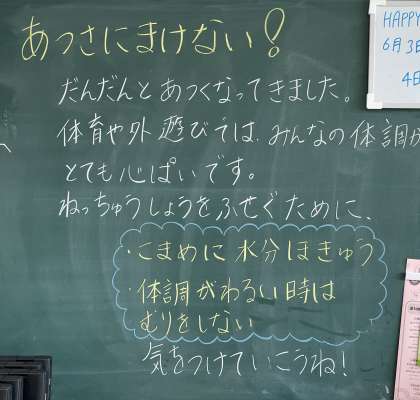 あつさにまけない!
だんだんとあつくなってきました。
体育や外遊びでは、みんなの体調が
とても心ぱいです。
ねっちゅうしょうをふせぐために、
・こまめに水分ほきゅう
・体調がわるい時は
むりをしない
気をつけていこうね!
HAPPY
6月3日
4日